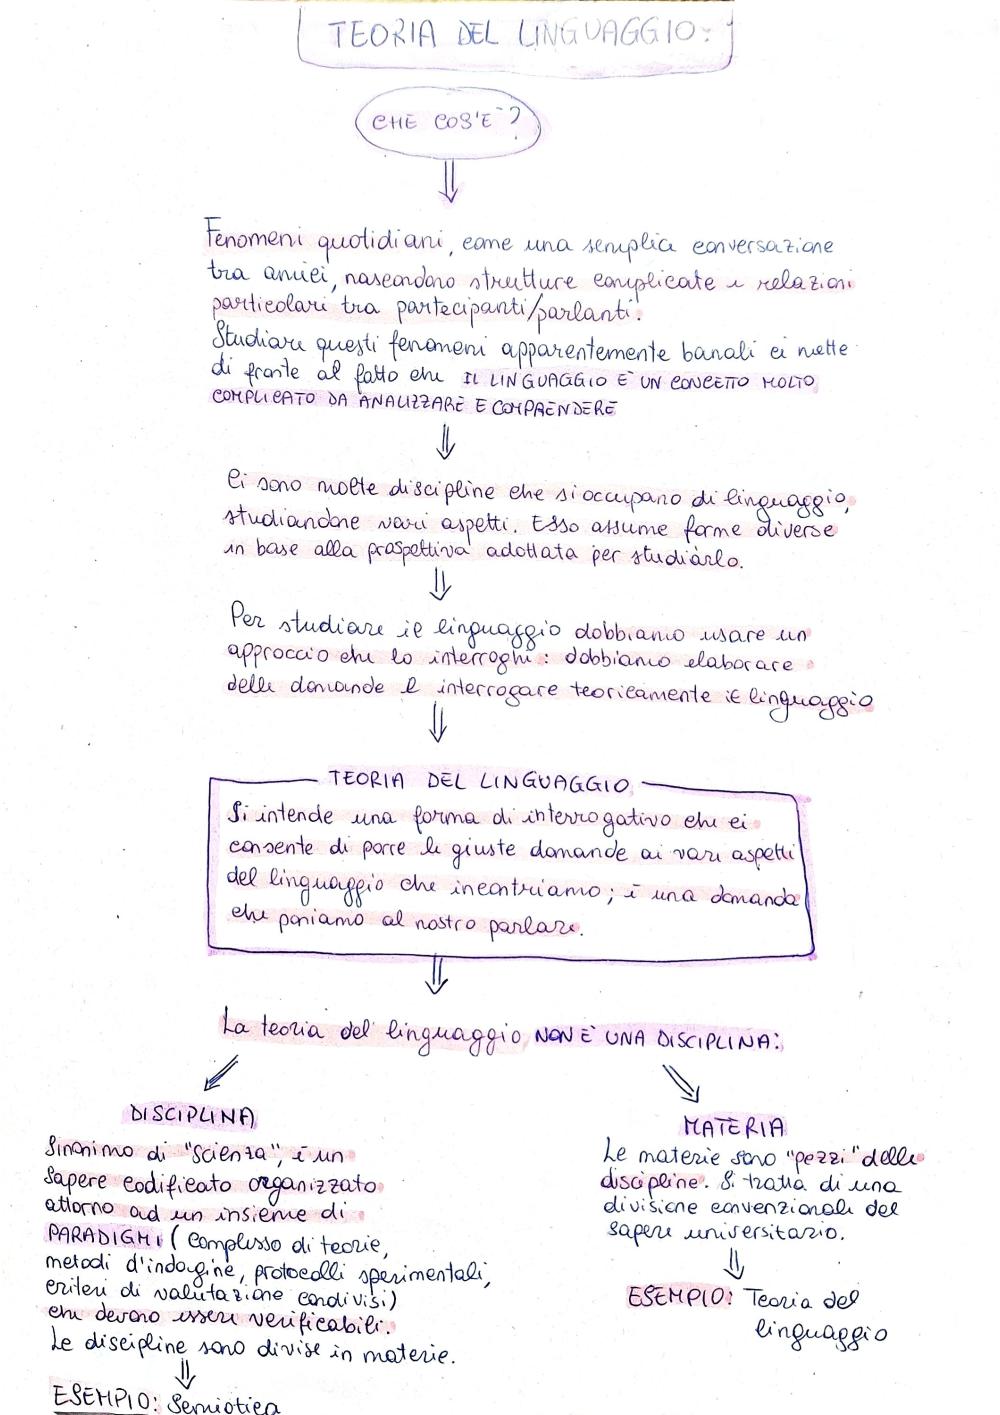 TEORIA DEL LINGUAGGIO:
CHE COS'E`?
Fenomeni quotidiani, come una semplice conversazione
tra amici, nascondono strutture complicate e relazioni
particolari tra partecipanti/parlanti.
Studiare questi fenomeni apparentemente banali ci mette
di fronte al fatto che IL LINGUAGGIO E' UN CONCETTO MOLTO
COMPLICATO DA ANALIZZARE E COMPRENDERE
Ci sono molte discipline che si occupano di linguaggio,
studiandone vari aspetti. Esso assume forme diverse
in base alla prospettiva adottata per studiarlo.
Per studiare il linguaggio dobbiamo usare un
approccio che lo interroghi: dobbiamo elaborare
delle domande e interrogare teoricamente il linguaggio
TEORIA DEL LINGUAGGIO
Si intende una forma di interrogativo che ci
consente di porre le giuste domande ai vari aspetti
del linguaggio che incontriamo; è una domanda
che poniamo al nostro parlare.
La teoria del linguaggio NON E' UNA DISCIPLINA:
DISCIPLINA
Sinonimo di "scienza", è un
sapere codificato organizzato
attorno ad un insieme di
PARADIGMI (complesso di teorie,
metodi d'indagine, protocolli sperimentali,
criteri di valutazione condivisi)
che devono essere verificabili.
Le discipline sono divise in materie.
ESEMPIO: Semiotica
MATERIA
Le materie sono "pezzi" delle
discipline. Si tratta di una
divisione convenzionale del
sapere universitario.
ESEMPIO: Teoria del
linguaggio